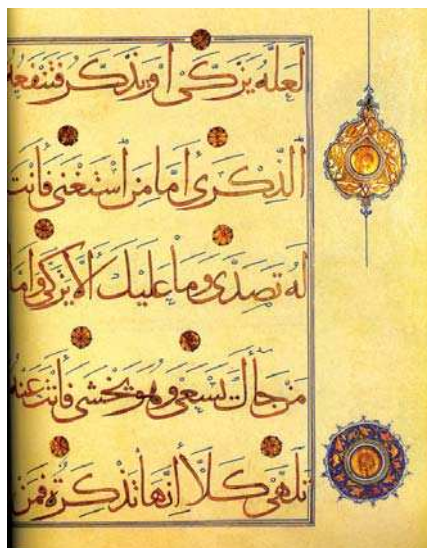 لعله يزكى او يذكر فتنفعه
الذكرى اما من استغنى فانت
له تصدى وما عليك الا يزكى واما
من جاك يسعى وهو يخشى فانت عنه
تلهى كلا انها تذكرة فمن